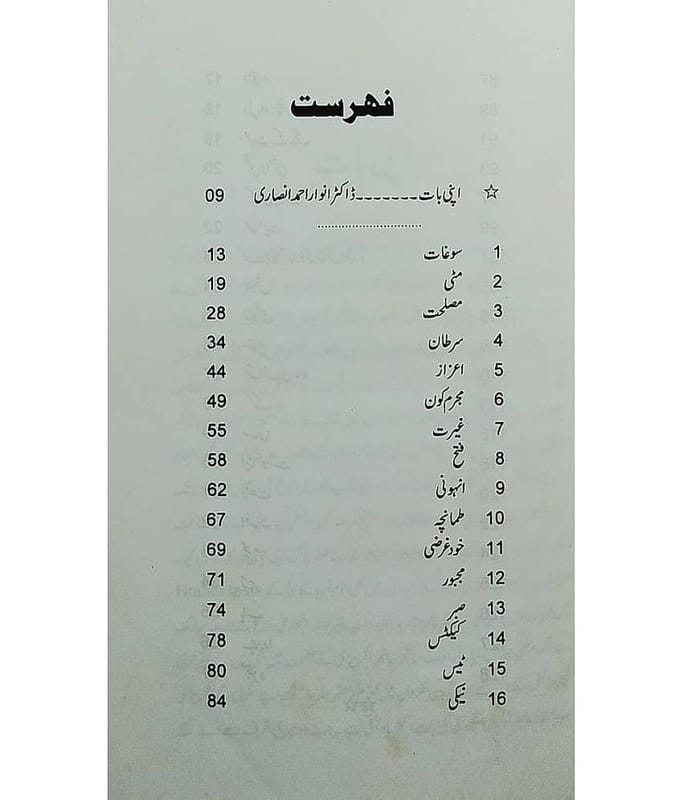 فہرست
☆ اپنی بات ۔۔۔۔۔۔۔ ڈاکٹر انوار احمد انصاری 09
1 سوغات 13
2 مٹی 19
3 مصلحت 28
4 سرطان 34
5 اعزاز 44
6 مجرم کون 49
7 غیرت 55
8 فتح 58
9 انہونی 62
10 طمانچہ 67
11 خود غرضی 69
12 مجبور 71
13 صبر 74
14 کیکٹس 78
15 ٹیس 80
16 نیکی 84